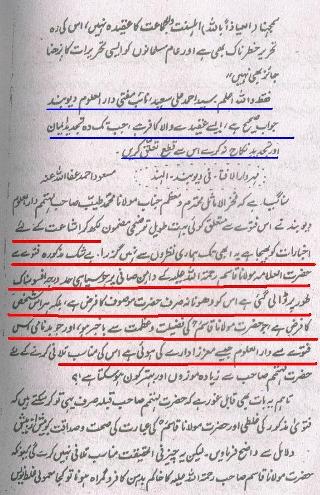 سمجھنا (العیاذ باللہ) اہلسنت والجماعت کا عقیدہ نہیں، اس کی وہ
تحریر خطرناک بھی ہے اور عام مسلمانوں کو ایسی تحریرات کا پڑھنا
جائز بھی نہیں"
فقط واللہ اعلم سید احمد علی سعید نائب مفتی دار العلوم دیوبند
جواب صحیح ہے، ایسے عقیدے والا کافر ہے، جب تک وہ تجدید ایمان
اور تجدید نکاح نہ کرے اس سے قطع تعلق کریں
مہر دار الافتاء فی دیوبند۔ الہند مسعود احمد عفا اللہ عنہ
سنا گیا ہے کہ فخر الاماثل محترم و معظم جناب مولانا محمد طیب صاحب مہتمم دار العلوم
دیوبند نے اس فتوے سے متعلق کوئی بہت طویل توضیحی مضمون لکھ کر اشاعت کے لئے
اخبارات کو بھیجا ہے یہ ابھی تک ہماری نظروں سے نہیں گذرا۔ بے شک مذکورہ فتوے سے
حضرت العلامہ مولانا قاسم رحمۃ اللہ علیہ کے دامن صافی پر جو سیاہی حد درجہ افسوسناک
طور پر ڈالی گئی ہے اس کو دھونا نہ صرف حضرت موصوف کا فرض ہے، بلکہ ہر اس شخص
کا فرض ہے جو حضرت مولانا قاسم کی فضیلت و عظمت سے باخبر ہو، اور جو بدنامی اس
فتوے سے دار العلوم جیسے معزز ادارے کی ہوئی ہے اس کی مناسب تلافی کرنے کے لئے
حضرت مہتمم صاحب سے زیادہ موزوں اور بہتر کون ہو سکتا ہے؟
تاہم یہ بات بھی قابل غور ہے کہ مہتمم صاحب قبلہ صرف یہی تو کر سکتے ہیں کہ
فتوی مذکور کی غلطی اور حضرت مولانا قاسم کی عبارت کی صحت و صداقت کو
دلائل سے واضح فرما دیں۔ لیکن یہ چیز فی الحقیقت مناسب تلافی نہیں کرے گی کیونکہ
مولانا قاسم صاحب رحمۃ اللہ علیہ کا خاکم بدہن کافر و گمراہ ہونا تو کجا معمولی غلط